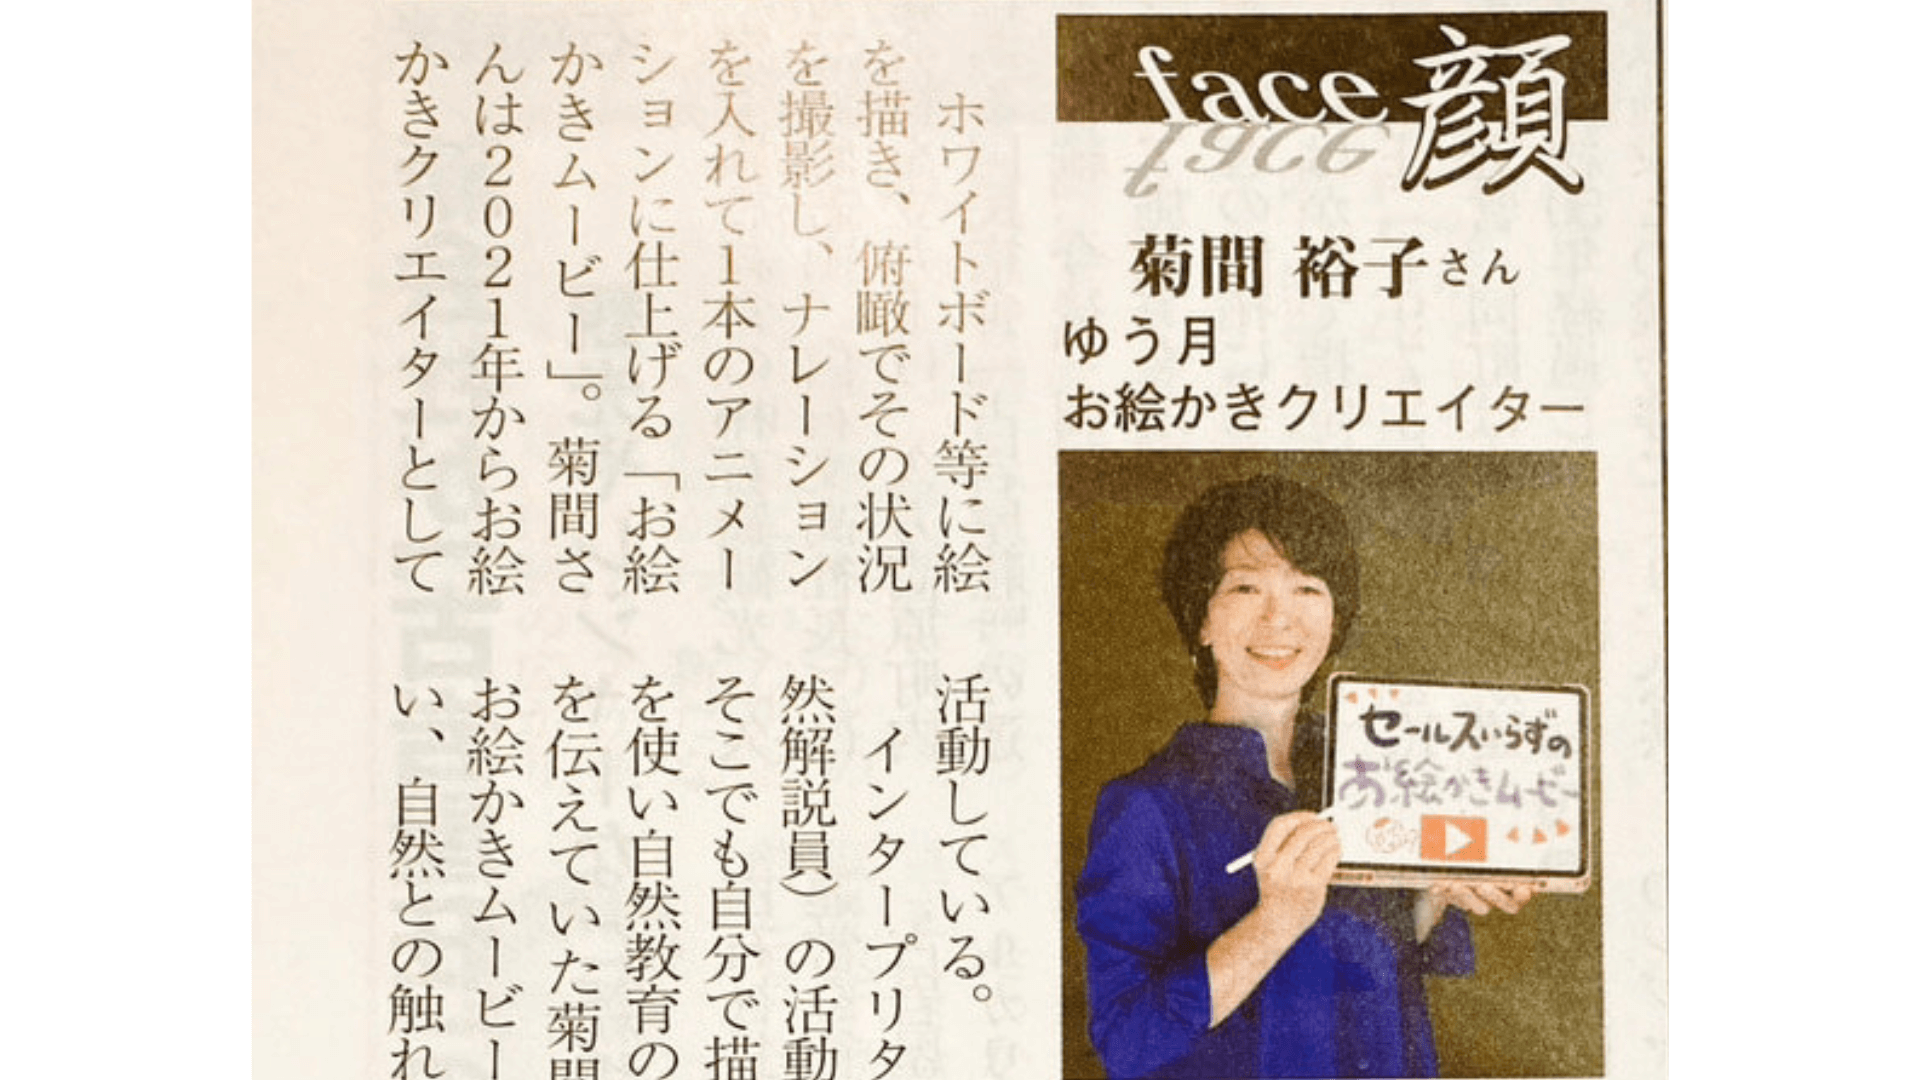 face 顔
菊間 裕子さん
ゆう月
お絵かきクリエイター
セールスいらずの
お絵かきムービー
ホワイトボード等に絵
を描き、俯瞰でその状況
を撮影し、ナレーション
を入れて1本のアニメー
ションに仕上げる「お絵
かきムービー」。菊間さ
んは2021年からお絵
かきクリエイターとして
活動している。
インタープリタ
然解説員）の活動
そこでも自分で描
を使い自然教育の
を伝えていた菊間
お絵かきムービー
い、自然との触れ